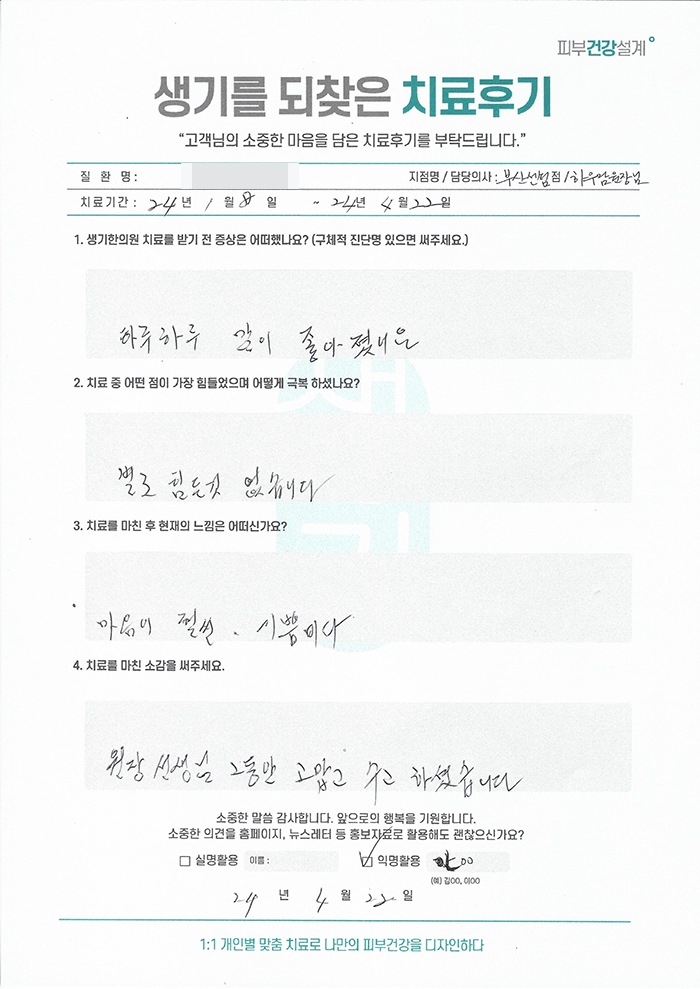 피부건강설계
생기를 되찾은 치료후기
“고객님의 소중한 마음을 담은 치료후기를 부탁드립니다.”
질 환 명: 지점명 / 담당의사 : 부산센텀점 / 하우람원장님
치료기간 : 24년 1월 8일 ~ 24년 4월 22일
1. 생기한의원 치료를 받기 전 증상은 어떠했나요? (구체적 진단명 있으면 써주세요.)
하루하루 많이 좋아졌네요
2. 치료 중 어떤 점이 가장 힘들었으며 어떻게 극복 하셨나요?
별로 힘든것 없습니다
3. 치료를 마친 후 현재의 느낌은 어떠신가요?
마음이 펄씬. 기쁨이다
4. 치료를 마친 소감을 써주세요.
원장 선생님 그동안 고맙고 수고 하셨습니다
소중한 말씀 감사합니다. 앞으로의 행복을 기원합니다.
소중한 의견을 홈페이지, 뉴스레터 등 홍보자료로 활용해도 괜찮으신가요?
실명활용 이름 : 익명활용 OO
(예) 김OO, 이OO
24년 4월 22일
1:1 개인별 맞춤 치료로 나만의 피부건강을 디자인하다